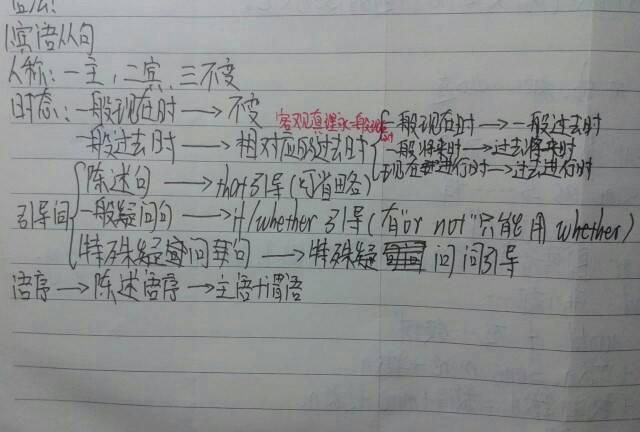 语法:
1宾语从句
人称:一主,二宾,三不变
时态:一般现在时→不变
客观真理永一般现在
一般过去时→相对应的过去时{一般现在时→一般过去时
一般将来时→过去将来时
现在进行时→过去进行时
引导词{陈述句→that引导(可省略)
一般疑问句→if/whether引导(有"or not"只能用whether)
特殊疑问句→特殊疑问词引导
语序→陈述语序→主语+谓语